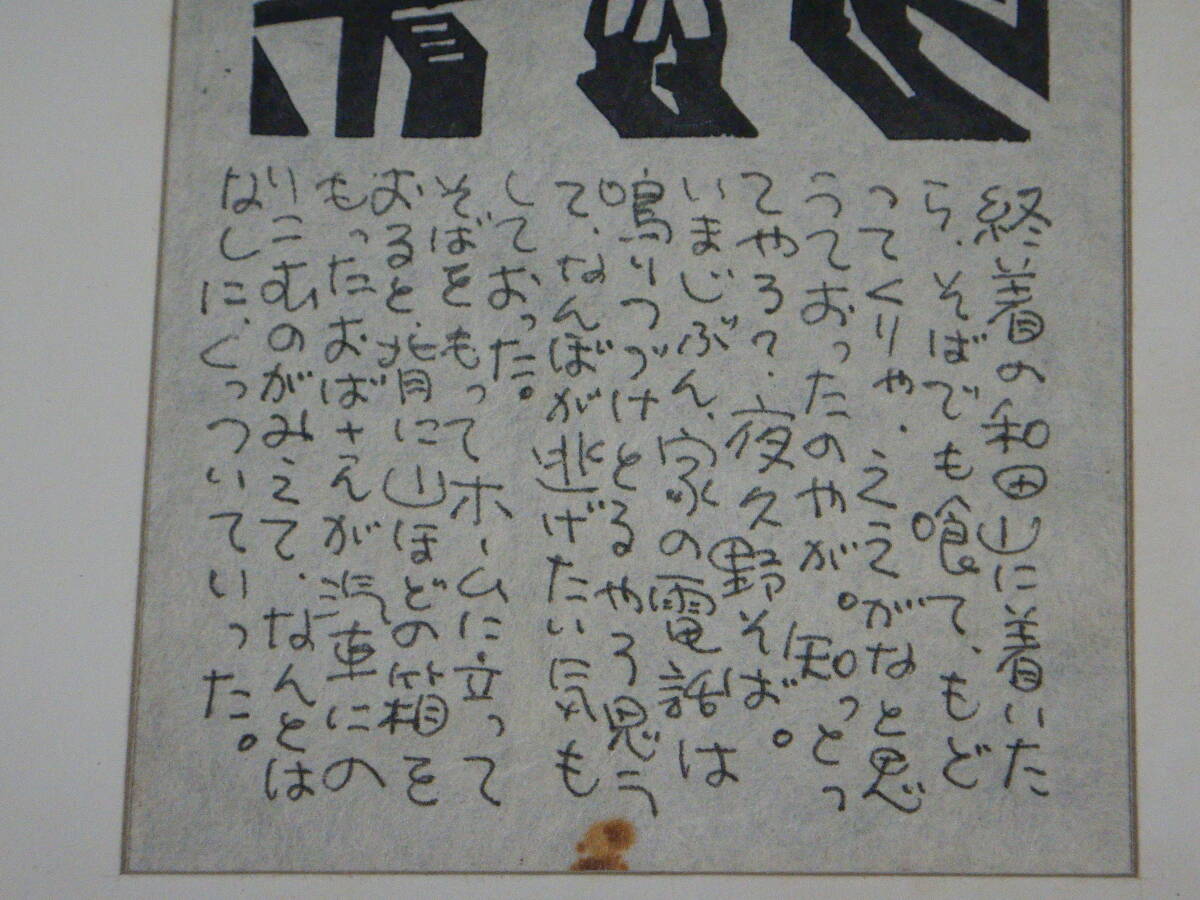 終着の和田山に着いた
ら、そばでも喰て、もど
ってくりゃ、ええがなと思
うておったのやが。知っとっ
てやろ?夜久野そば。
いまじぶん、家の電話は
鳴りつづけとるやろ思う
て、なんぼが逃げたい気も
しておった。
そばをもってホームに立って
おると、背に山ほどの箱を
もったおばさんが汽車にの
りこむのがみえて、なんとは
なしに、くっついていった。